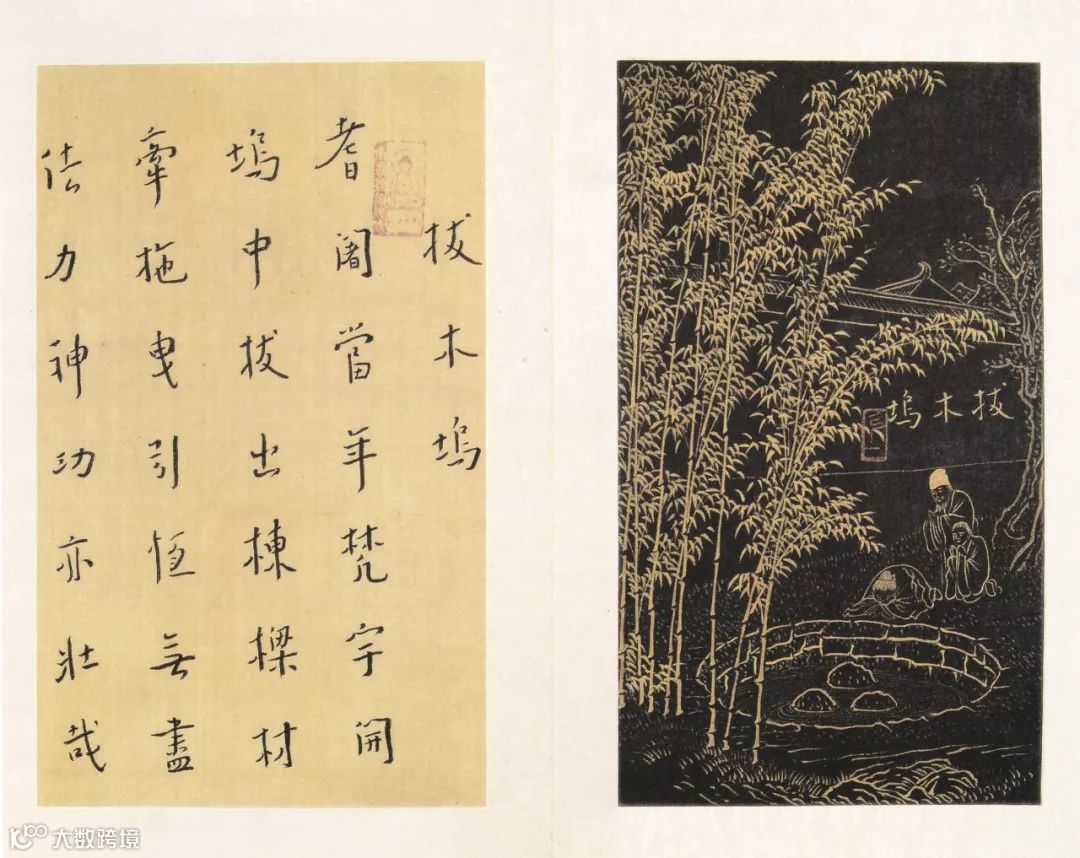 拔木塢
耆闍當年梵宇開
塢中拔出棟樑材
牽拖曳引恆無盡
佉力神功亦壯哉
拔木塢
大数跨境